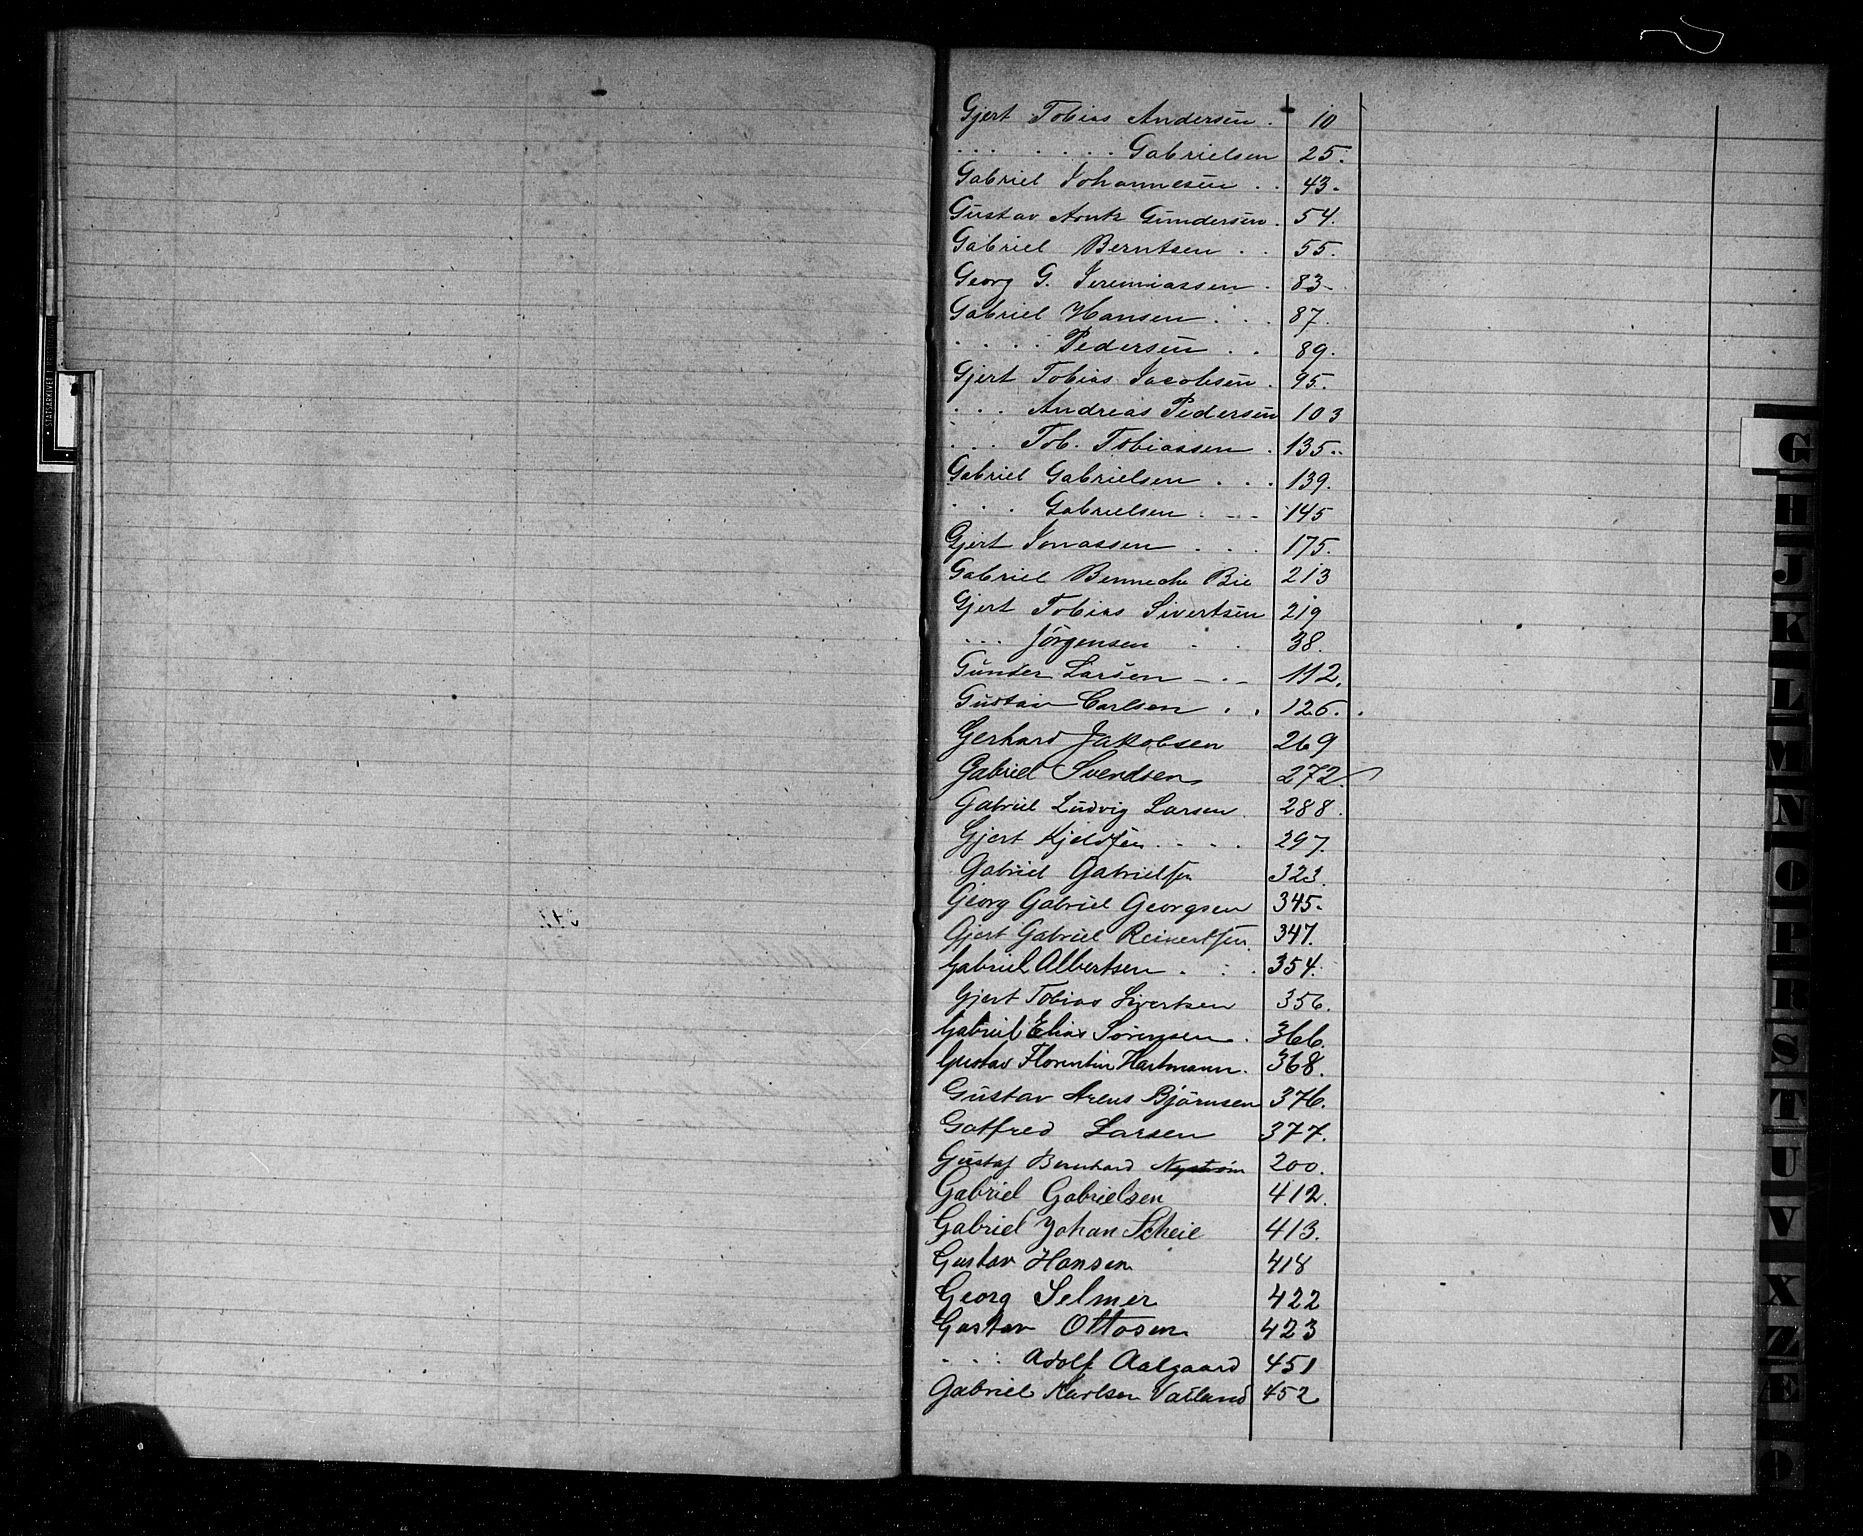 Gjert Tobias Andersen . 10
. . . . . . . Gabrielsen 25.
Gabriel Johannesen . . 43.
Gustav Arntz Gundersen . 54.
Gabriel Berntsen . . 55.
Georg G. Jeremiassen . 83.
Gabriel Hansen . . . 87.
. . . . Pedersen . . 89.
Gjert Tobias Jacobsen . 95.
. . . Andreas Pedersen 103
. . . Tob. Tobiassen . 135.
Gabriel Gabrielsen . . . 139.
. . . Gabrielsen . . . 145
Gjert Jonassen . . . 175.
Gabriel Benneche Bie 213
Gjert Tobias Sivertsen 219
. . . Jörgensen . . 38.
Gunder Larsen - . - 112.
Gustav Carlsen . . 126.
Gerhard Jakobsen 269
Gabriel Svendsen 272.
Gabriel Ludvig Larsen . 288.
Gjert Kjeldsen . . . . 297.
Gabriel Gabrielsen 323.
Georg Gabriel Georgsen 345.
Gjert Gabriel Reinertsen. 347.
Gabriel Albertsen . . . 354.
Gjert Tobias Sivertsen 356.
Gabriel Elias Sörensen . 366.
Gustav Florentin Hartmann. 368.
Gustav Arens Bjørnsen 376.
Gotfred Larsen 377.
Gustaf Bernhard Nyström 200.
Gabriel Gabrielsen 412.
Gabriel Johan Scheie 413.
Gustav Hansen 418
Georg Selmer 422
Gustav Ottosen 423
. . . Adolf Aalgaard 451
Gabriel Karlsen Vatland 452
STATSARKIVET I
G
H
J
K
L
M
N
O
P
R
S
T
U
V
X
Z
Æ
Ø